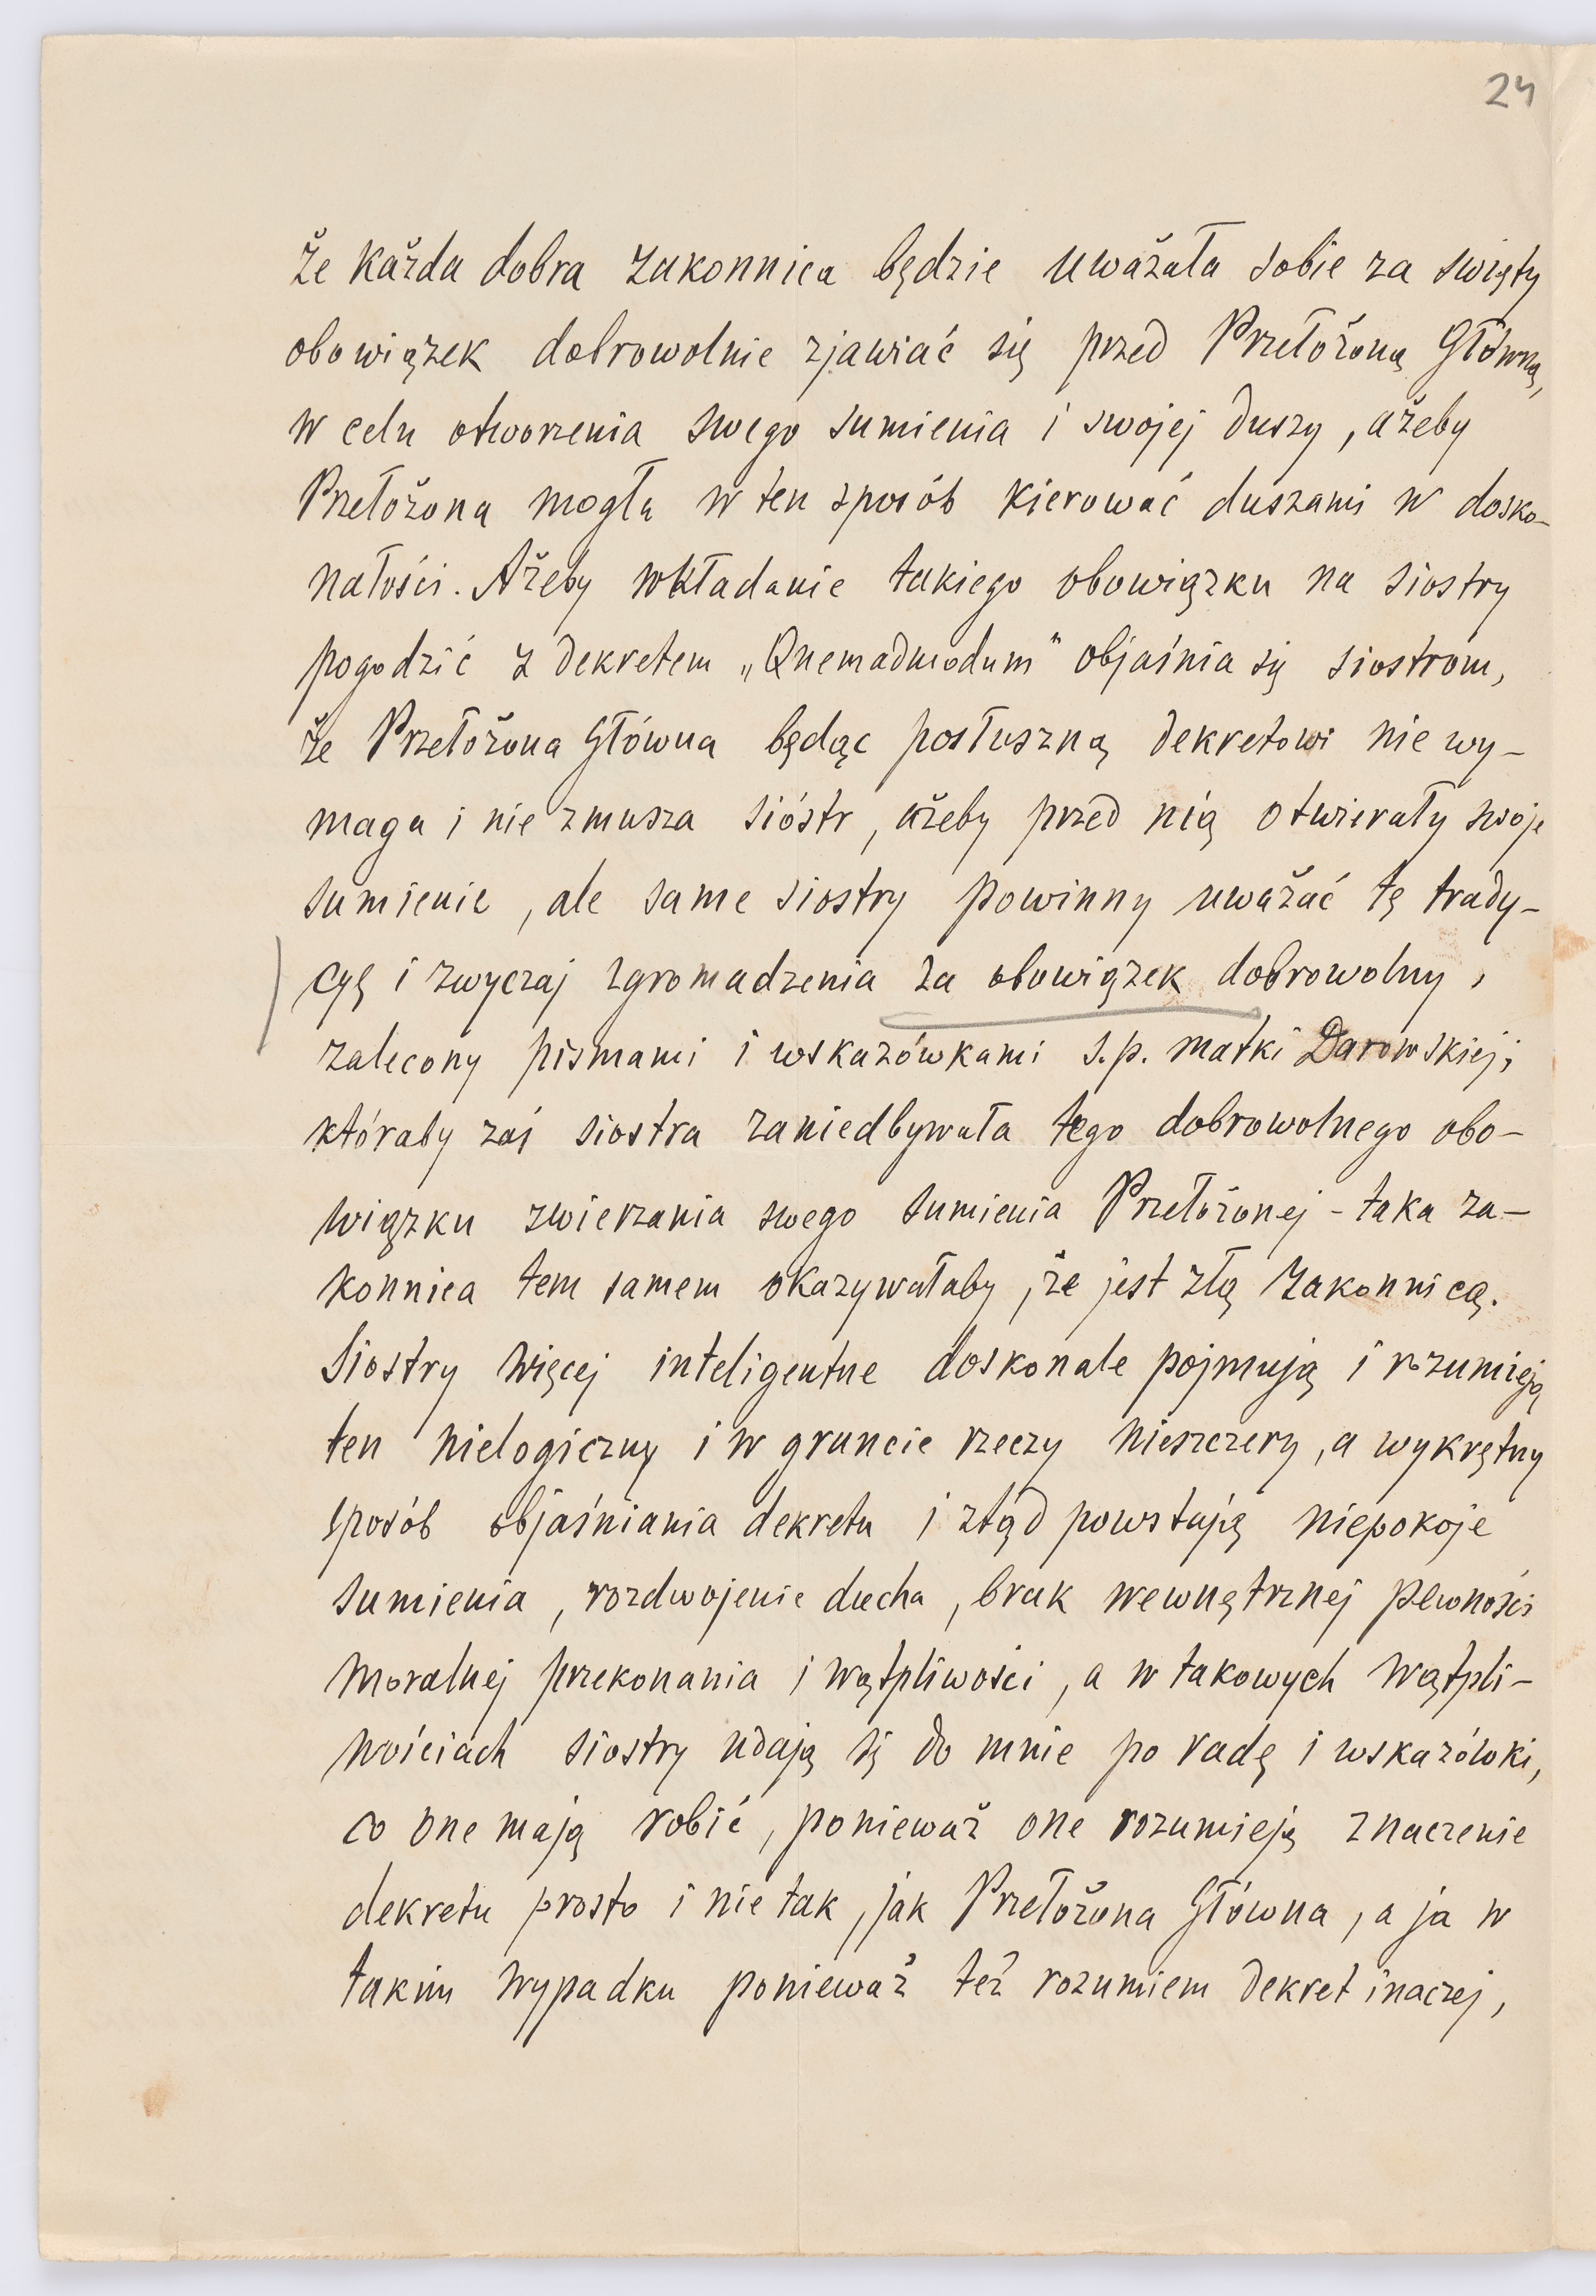 24
że każda dobra zakonnica będzie uważała sobie za święty
obowiązek dobrowolnie zjawiać się przed Przełożoną Główną,
w celu otworzenia swego sumienia i swojej duszy, ażeby
Przełożona mogła w ten sposób kierować duszami w dosko-
nałości. Ażeby wkładanie takiego obowiązku na siostry
pogodzić z dekretem „Quemadmodum" objaśnia się siostrom,
że Przełożona Główna będąc posłuszną dekretowi nie wy-
maga i nie zmusza sióstr, ażeby przed nią otwierały swoje
sumienie, ale same siostry powinny uważać tę trady-
cyę i zwyczaj zgromadzenia za obowiązek dobrowolny,
zalecony pismami i wskazówkami ś.p. matki Darowskiej;
któraby zaś siostra zaniedbywała tego dobrowolnego obo-
wiązku zwierzania swego sumienia Przełożonej - taka za-
konnica tem samem okazywałaby, że jest złą zakonnicą.
Siostry więcej inteligentne doskonale pojmują i rozumieją
ten nielogiczny i w gruncie rzeczy nieszczery, a wykrętny
sposób objaśniania dekretu i ztąd powstają niepokoje
sumienia, rozdwojenie ducha, brak wewnętrznej pewności
moralnej przekonania i wątpliwości, a w takowych wątpli-
wościach siostry udają się do mnie po radę i wskazówki,
co one mają robić, ponieważ one rozumieją znaczenie
dekretu prosto i nie tak, jak Przełożona Główna, a ja w
takim wypadku ponieważ też rozumiem dekret inaczej,